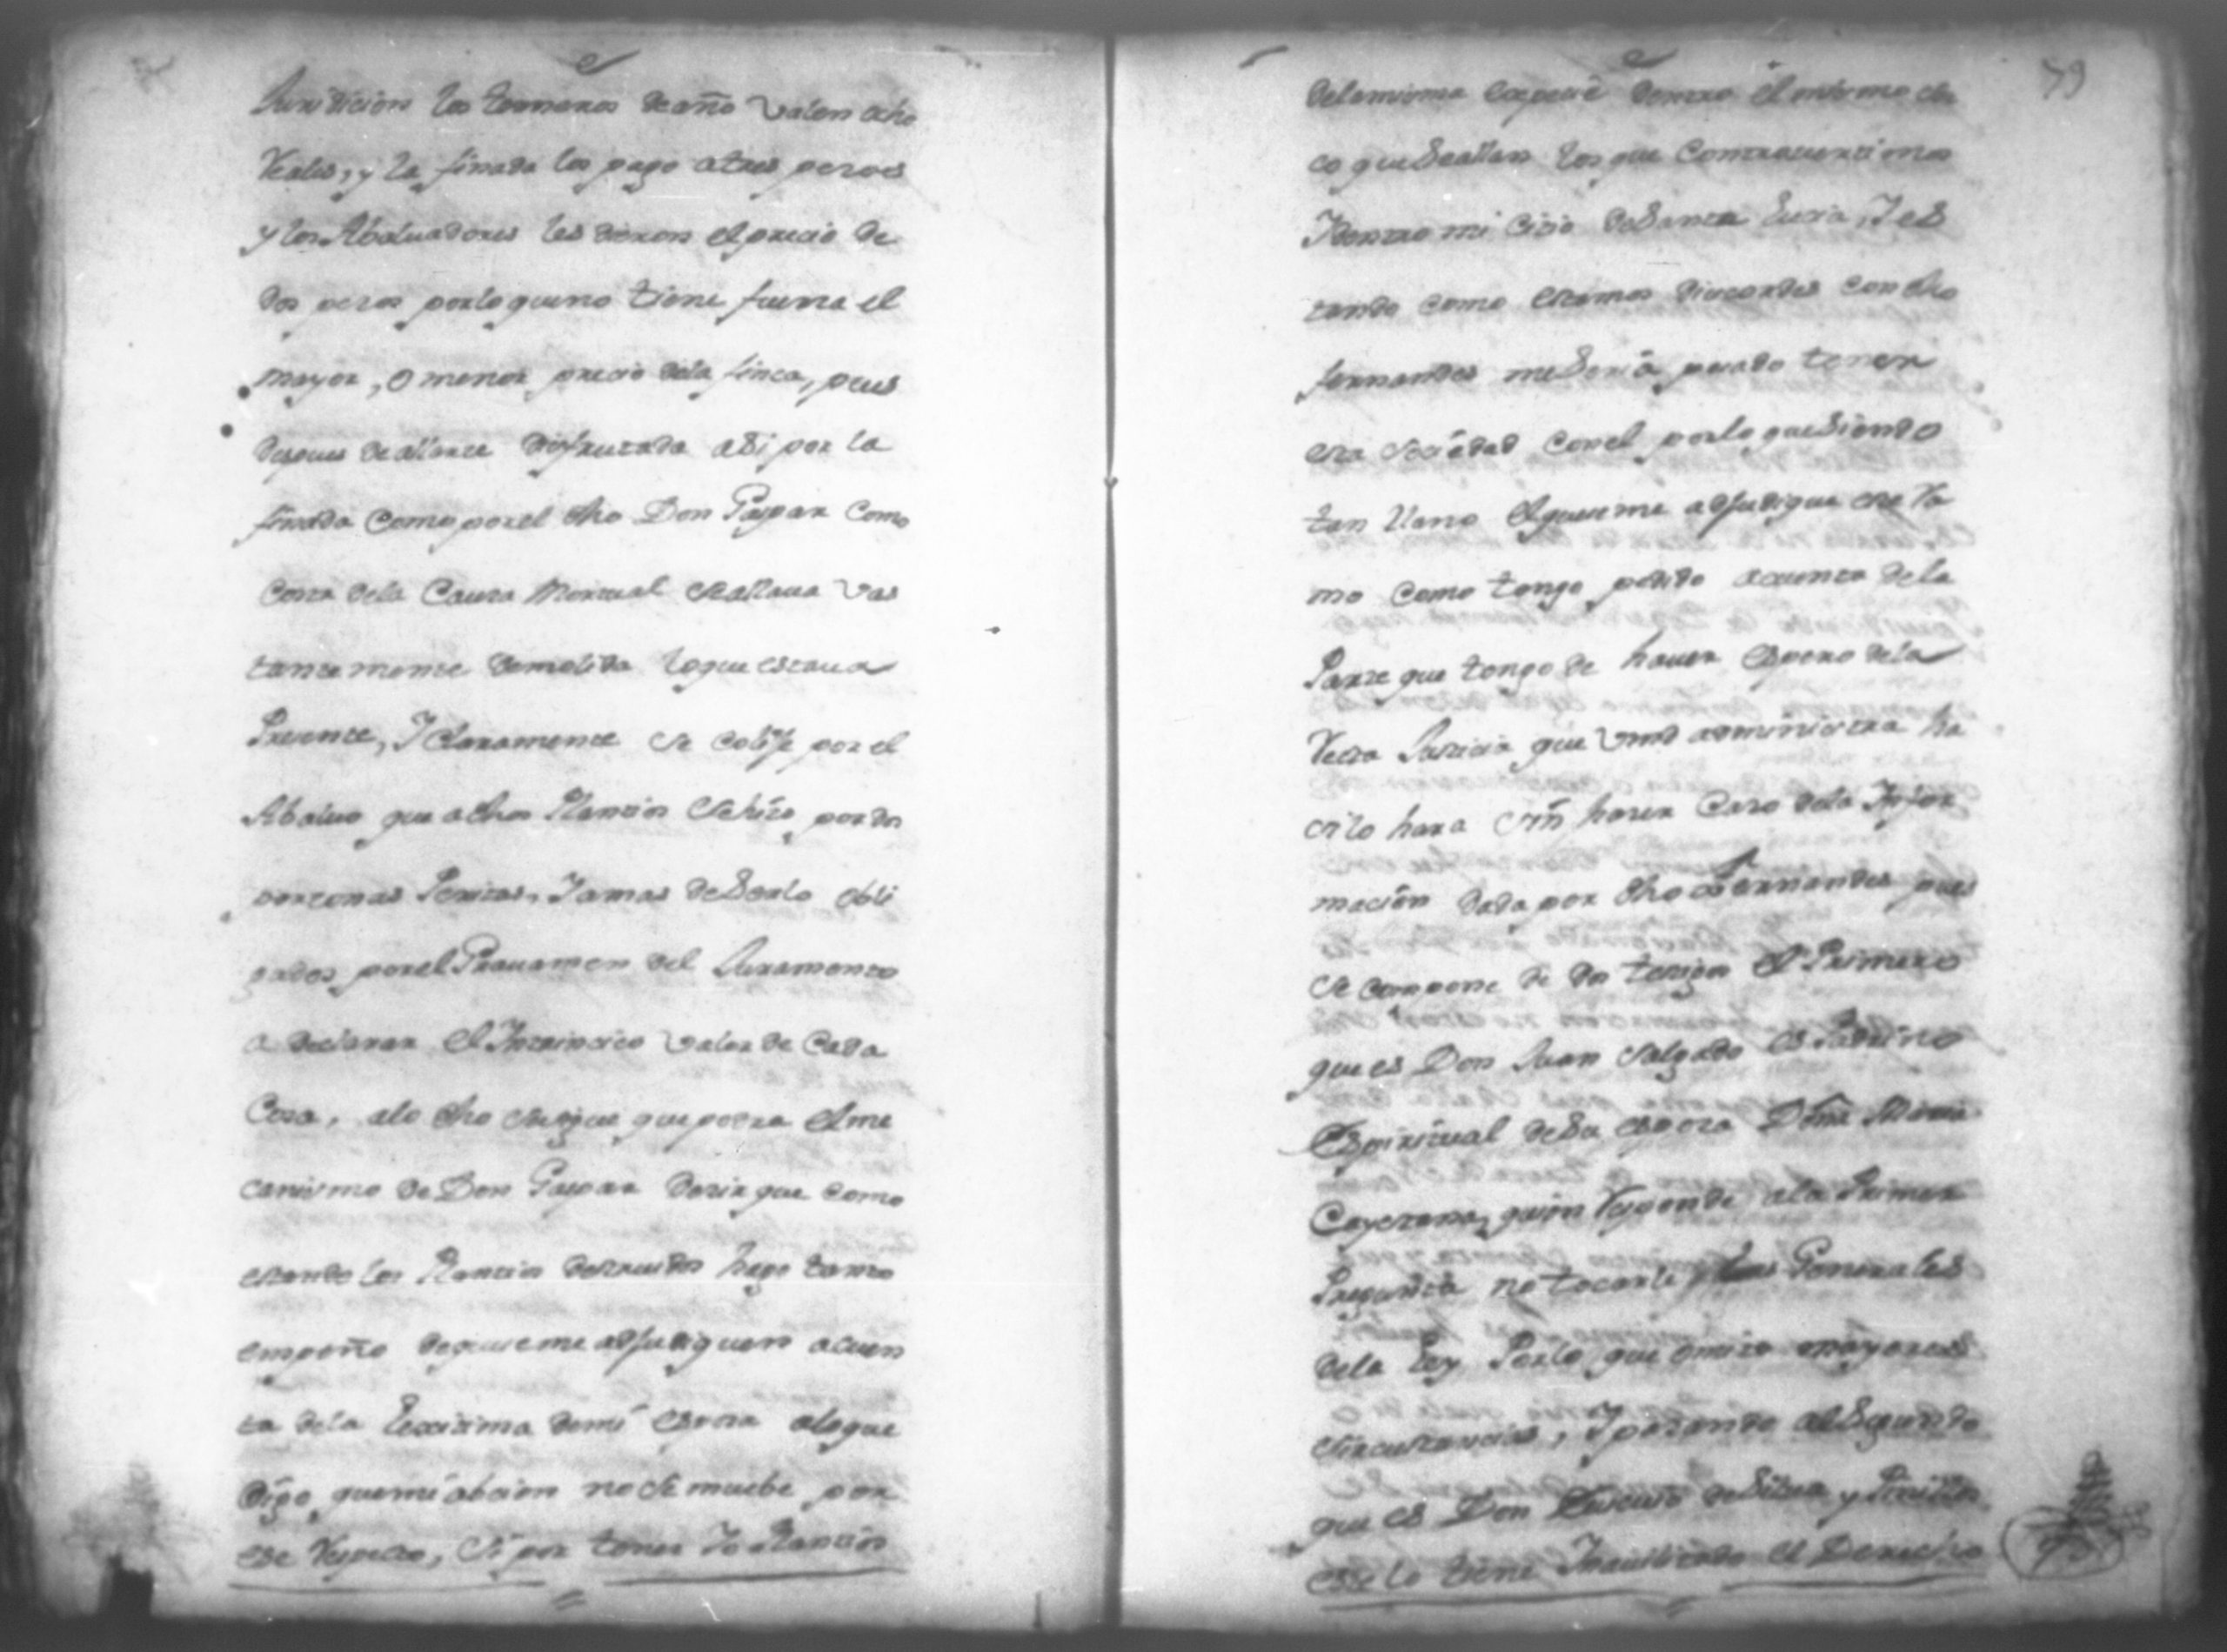 Juridicion los terneros de año valen ocho
Reales, y la finada los pago a tres pesos
y los Abaluadores les dieron el precio de
dos pesos por lo que no tiene fuerza el
mayor, o menor precio dela finca, pues
despues de allarce disfrutada asi por la
finada como por el dho Don Gaspar como
costa dela Causa Mortual se allaua vas
tantemente demolida lo que estaua
Presente, Y claramente se colije por el
Abaluo que a dhos Plantios se hiso por dos
personas Peritas, Y amas de serlo obli
gados por el Grauamen del Juramento
a declarar el Intrinsico valor de Cada
Cosa, alo dho se sigue que podra el me
canismo de Don Gaspar desir que como
estando los Plantios destruidos hago tanto
empeño de que se me adjudiquen a cuen
ta dela Lexitima de mi esposa alo que
digo que mi abcion no se muebe por
ese Respecto, Si por tener Yo Plantios
79
dela misma especie dentro el mismo
co que se allan los que Controuertimos
Y dentro mi Citio de Santa Lucia, Y es
tando como estamos discordes con dho
fernandes me seria pesado tener
esta Sociedad con el por lo que siendo
tan llano el que se me adjudique ese Ra
mo como tengo pedido a cuenta dela
Parte que tengo de hauer espero dela
Recta Justicia que Vmd administra ha
si lo hara sin haser Caso dela Infor
macion dada por dho Fernandes pues
se compone de dos testigos el Primero
que es Don Juan Salgado es Padrino
Espiritual de su esposa Doña Maria
Cayetana, quien Responde ala Primer
Pregunta no tocarle las Generales
dela Ley Por lo que omito mayores
Sircustancias, Y pasando al Segundo
que es Don de Silua y
ese lo tiene Inauilitado el Derecho